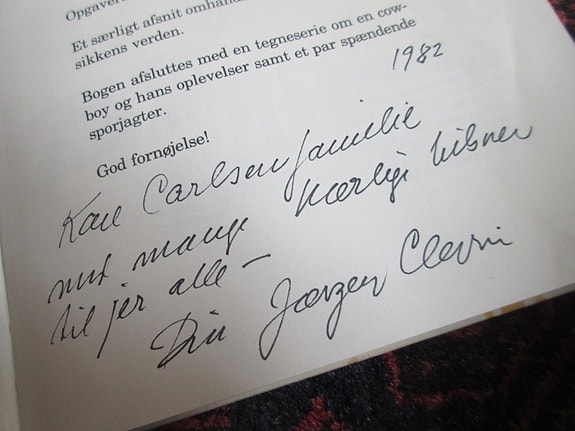 Opgaver
Et særligt afsnit omhand
sikkens verden.
Bogen afsluttes med en tegneserie om en cow-
boy og hans oplevelser samt et par spændende
sporjagter.
God fornøjelse!
1982
Kære Carlsen familie
med mange kærlige hilsner
til jer alle –
Din Jørgen Clevin